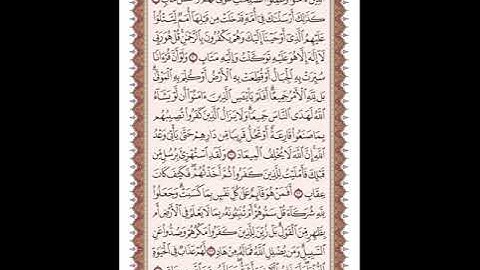 كَذَٰلِكَ أَرْسَلْنَٰكَ فِىٓ أُمَّةٍ قَدْ خَلَتْ مِن قَبْلِهَآ أُمَمٌ لِّتَتْلُوَا۟
عَلَيْهِمُ ٱلَّذِىٓ أَوْحَيْنَآ إِلَيْكَ وَهُمْ يَكْفُرُونَ بِٱلرَّحْمَٰنِ قُلْ هُوَ رَبِّى
لَآ إِلَٰهَ إِلَّا هُوَ عَلَيْهِ تَوَكَّلْتُ وَإِلَيْهِ مَتَابِ ۝ وَلَوْ أَنَّ قُرْءَانًا
سُيِّرَتْ بِهِ ٱلْجِبَالُ أَوْ قُطِّعَتْ بِهِ ٱلْأَرْضُ أَوْ كُلِّمَ بِهِ ٱلْمَوْتَىٰ
بَل لِّلَّهِ ٱلْأَمْرُ جَمِيعًا أَفَلَمْ يَا۟يْـَٔسِ ٱلَّذِينَ ءَامَنُوٓا۟ أَن لَّوْ يَشَآءُ
ٱللَّهُ لَهَدَى ٱلنَّاسَ جَمِيعًا وَلَا يَزَالُ ٱلَّذِينَ كَفَرُوا۟ تُصِيبُهُم
بِمَا صَنَعُوا۟ قَارِعَةٌ أَوْ تَحُلُّ قَرِيبًا مِّن دَارِهِمْ حَتَّىٰ يَأْتِىَ وَعْدُ
ٱللَّهِ إِنَّ ٱللَّهَ لَا يُخْلِفُ ٱلْمِيعَادَ ۝ وَلَقَدِ ٱسْتُهْزِئَ بِرُسُلٍ مِّن
قَبْلِكَ فَأَمْلَيْتُ لِلَّذِينَ كَفَرُوا۟ ثُمَّ أَخَذْتُهُمْ فَكَيْفَ كَانَ
عِقَابِ ۝ أَفَمَنْ هُوَ قَآئِمٌ عَلَىٰ كُلِّ نَفْسٍۭ بِمَا كَسَبَتْ وَجَعَلُوا۟
لِلَّهِ شُرَكَآءَ قُلْ سَمُّوهُمْ أَمْ تُنَبِّـُٔونَهُۥ بِمَا لَا يَعْلَمُ فِى ٱلْأَرْضِ أَم
بِظَٰهِرٍ مِّنَ ٱلْقَوْلِ بَلْ زُيِّنَ لِلَّذِينَ كَفَرُوا۟ مَكْرُهُمْ وَصُدُّوا۟ عَنِ
ٱلسَّبِيلِ وَمَن يُضْلِلِ ٱللَّهُ فَمَا لَهُۥ مِنْ هَادٍ ۝ لَّهُمْ عَذَابٌ فِى ٱلْحَيَوٰةِ